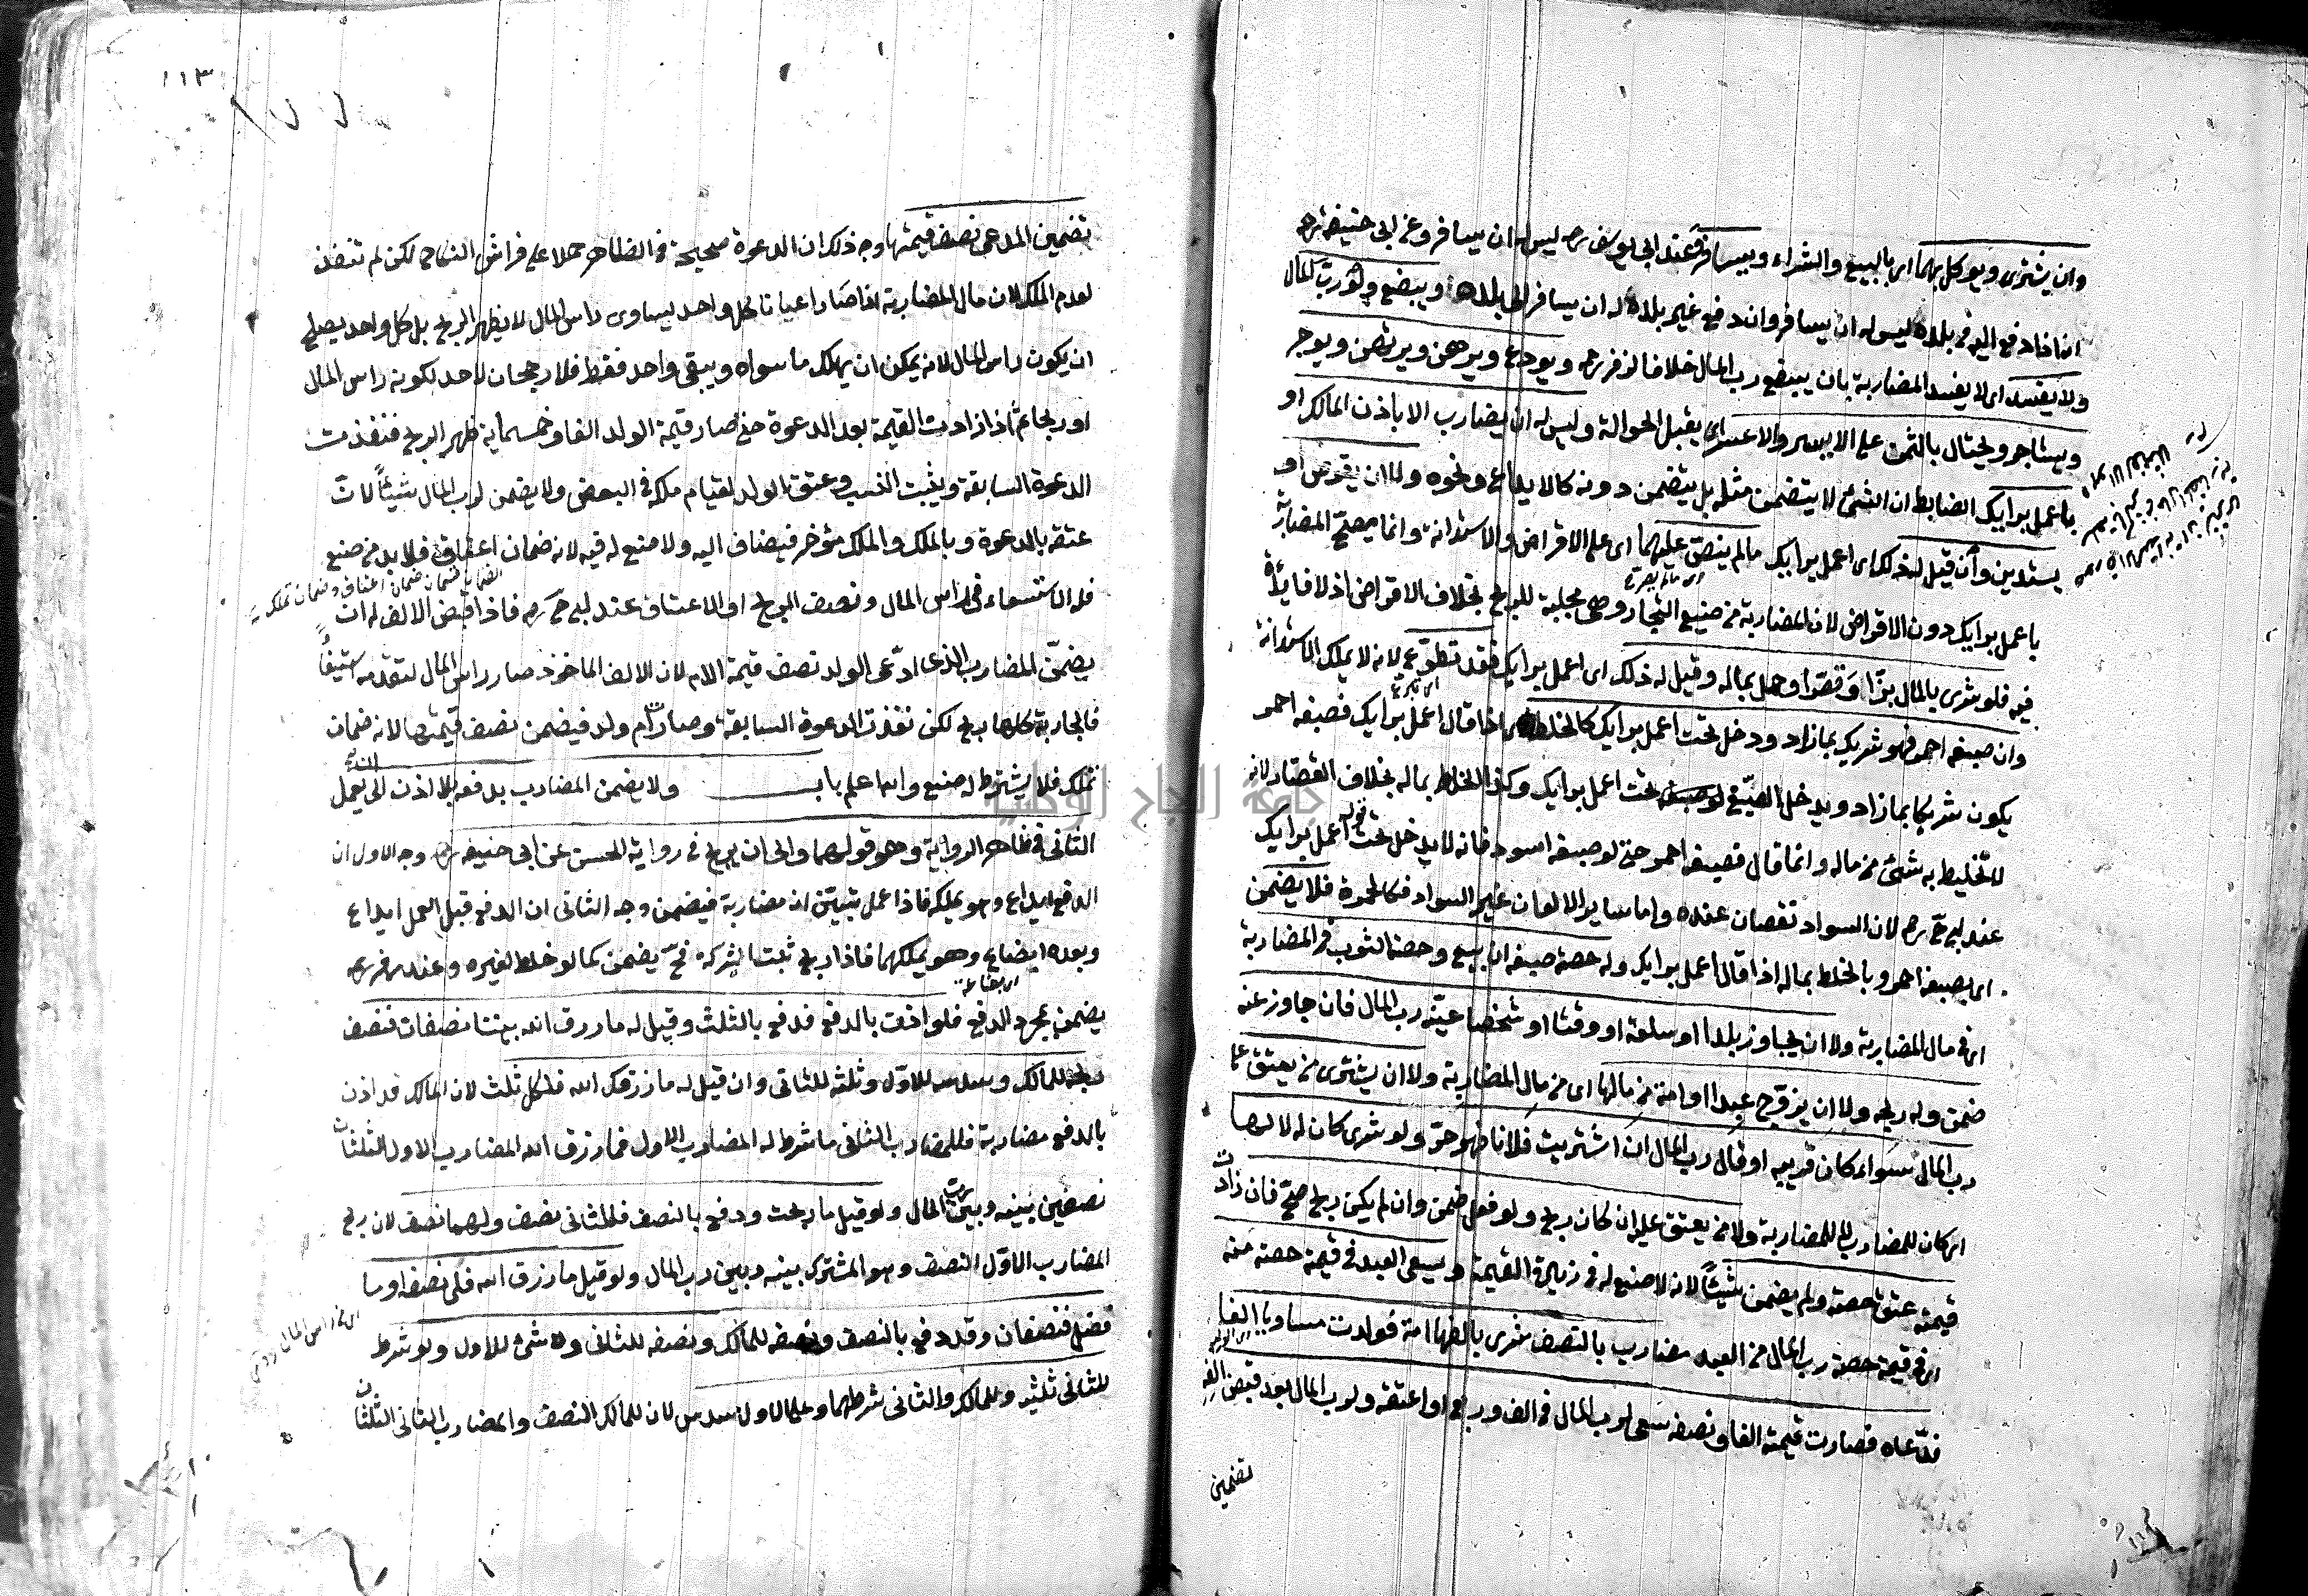 وان يشترى ويوكل بهما اى بالبيع والشراء ويسافر وعند ابى يوسف رح ليس له ان يسافر وعن ابى حنيفة رح
انه اذا دفع اليه فى بلده ليس له ان يسافر وان دفع فى غير بلده له ان يسافر الى بلده ويبضع ولو رب المال
ولا يفسد اى لا يفسد المضاربة بان يبضع رب المال خلافا لزفر رح ويودع ويرهن ويرتهن ويوجر
ويستاجر ويحتال بالثمن على الايسر والاعسر اى يقبل الحوالة وليس له ان يضارب الا باذن المالك او
باعمل برايك الضابط ان الشئ لا يتضمن مثله بل يتضمن دونه كالايداع ونحوه ولا ان يقرض او
يستدين وان قيل له ذلك اى اعمل برايك مالم ينص عليهما اى على الاقراض والاستدانة وانما يصح المضاربة
باعمل برايك دون الاقراض لان المضاربة من صنيع التجار وهى مجلبة للربح بخلاف الاقراض اذ لا فائدة
فيه فلو شرى بالمال بزا وقصر او حمل بماله وقيل له ذلك اى اعمل برايك فقد تطوع لانه لا يملك الاستدانة
وان صبغه احمر فهو شريك بما زاد ودخل تحت اعمل برايك كالخلط اى اذا قال اعمل برايك فصبغه احمر
يكون شريكا بما زاد ويدخل الصبغ تحت اعمل برايك وكذا الخلط بماله بخلاف القصارة لانه
لا تخليط به شئ من ماله وانما قال فصبغه احمر حتى لو صبغه اسود فانه لا يدخل تحت قوله اعمل برايك
عند ابى ح رح لان السواد نقصان عنده واما ساير الالوان غير السواد فكالحمرة فلا يضمن
اى بصبغه احمر وبالخلط بماله اذا قال اعمل برايك وله حصة صبغه ان بيع وحصة الثوب فى المضاربة
اى فى مال المضاربة ولا ان يجاوز بلدا او سلعة او وقتا او شخصا عينه رب المال فان جاوز عنه
ضمن وله ربحه ولا ان يزوج عبدا او امة من مالها اى من مال المضاربة ولا ان يشترى من يعتق على
رب المال سواء كان قريبه او قال رب المال ان اشتريت فلانا فهو حر ولو شرى كان له لا لها
اى كان للمضارب لا للمضاربة ولا من يعتق عليه ان كان ربح ولو فعل ضمن وان لم يكن ربح صح فان زادت
قيمته عتق حصته ولم يضمن شيئا لانه لا صنيع له فى زيادة القيمة ويسعى العبد فى قيمة حصته منه
اى فى قيمة حصة رب المال من العبد مضارب بالنصف شرى بالفها امة فولدت مساويا الفا
فادعاه فصارت قيمته الفا ونصفه سعى لرب المال فى الف وربعه او اعتقه ولرب المال بعد قبض الفه
تضمين
١١٣
تضمين المدعى نصف قيمتها وجه ذلك ان الدعوة صحيحة فى الظاهر حملا على فراش النكاح لكن لم تنفذ
لعدم الملك لان مال المضاربة اذا صار اعيانا كل واحد يساوى راس المال لا يظهر الربح بل كل واحد يصلح
ان يكون راس المال لانه يمكن ان يهلك ما سواه ويبقى واحد فقط فلا رجحان لاحد لكونه راس المال
او ربحا ثم اذا زادت القيمة بعد الدعوة حتى صار قيمة الولد الفا وخمسماية ظهر الربح فنفذت
الدعوة السابقة ويثبت النسب وعتق الولد لقيام ملكه فى البعض ولا يضمن لرب المال شيئا لان
عتقه بالدعوة وبالملك والملك مؤخر فيضاف اليه ولا صنع له فيه لانه ضمان اعتاق فلا بد من صنيع
فله الاستسعاء فى راس المال ونصف الربح او الاعتاق عند ابى ح رح فاذا قبض الالف له ان
يضمن المضارب الذى ادعى الولد نصف قيمة الام لان الالف الماخوذ صار راس المال لتقدمه استيفاء
فالجارية كلها ربح لكن نفذت الدعوة السابقة وصارت ام ولد فيضمن نصف قيمتها لانه ضمان
تملك فلا يشترط له صنيع والله اعلم باب ولا يضمن المضارب بدفعه بلا اذن الى يعمل
الثانى فى ظاهر الرواية وهو قولهما والى ان يربح فى رواية الحسن عن ابى حنيفة رح وجه الاول ان
الدفع ايداع وهو يملكه فاذا عمل تبين انه مضاربة فيضمن وجه الثانى ان الدفع قبل العمل ايداع
وبعده ابضاع وهو يملكهما فاذا ربح ثبت الشركة فح يضمن كما لو خلط لغيره وعند زفر رح
يضمن بمجرد الدفع فلو اذن بالدفع فدفع بالثلث وقيل له ما رزق الله بيننا نصفان فنصف
ربحه للمالك وسدسه للاول وثلثه للثانى وان قيل له ما رزقك الله فلكل ثلث لان المالك قد اذن
بالدفع مضاربة فللمضارب الثانى ما شرط له المضارب الاول فما رزق الله المضارب الاول الثلثان
نصفين بينه وبين رب المال ولو قيل ما ربحت ودفع بالنصف فللثانى نصف ولهما نصف لان ربح
المضارب الاول النصف وهو المشترك بينه وبين رب المال ولو قيل ما رزق الله فلى نصفه او ما
فضل فنصفان وقد دفع بالنصف ونصفه للمالك ونصفه للثانى ولا شئ للاول ولو شرط
للثانى ثلثيه وللمالك والثانى شرطهما وعلى الاول سدس لان للمالك النصف والمضارب الثانى الثلثان
جامعة النجاح الوطنية